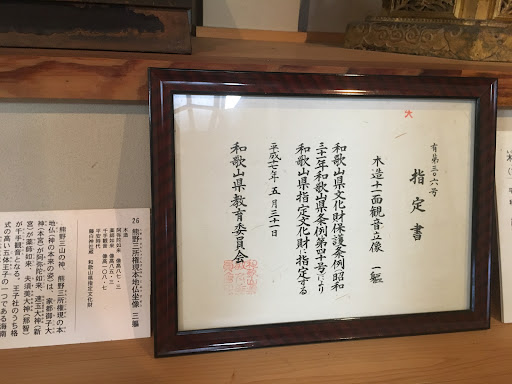 有第三〇六号
指定書
木造十一面観音立像 一軀
和歌山県文化財保護条例(昭和
三十一年和歌山県条例第四十号)により
和歌山県指定文化財に指定する
平成十七年五月三十一日
和歌山県教育委員会
26
熊野三所権現本地仏坐像 三軀
木造
平安時代
藤白神社蔵 和歌山県指定文化財
熊野三山の神、熊野三所権現の本
地仏(神の本来の姿)は、家都御子大
神(本宮)が阿弥陀如来、速玉大神(新
宮)が薬師如来、夫須美大神(那智)
が千手観音になる。王子社のうち格
式の高い五体王子の一つである海南